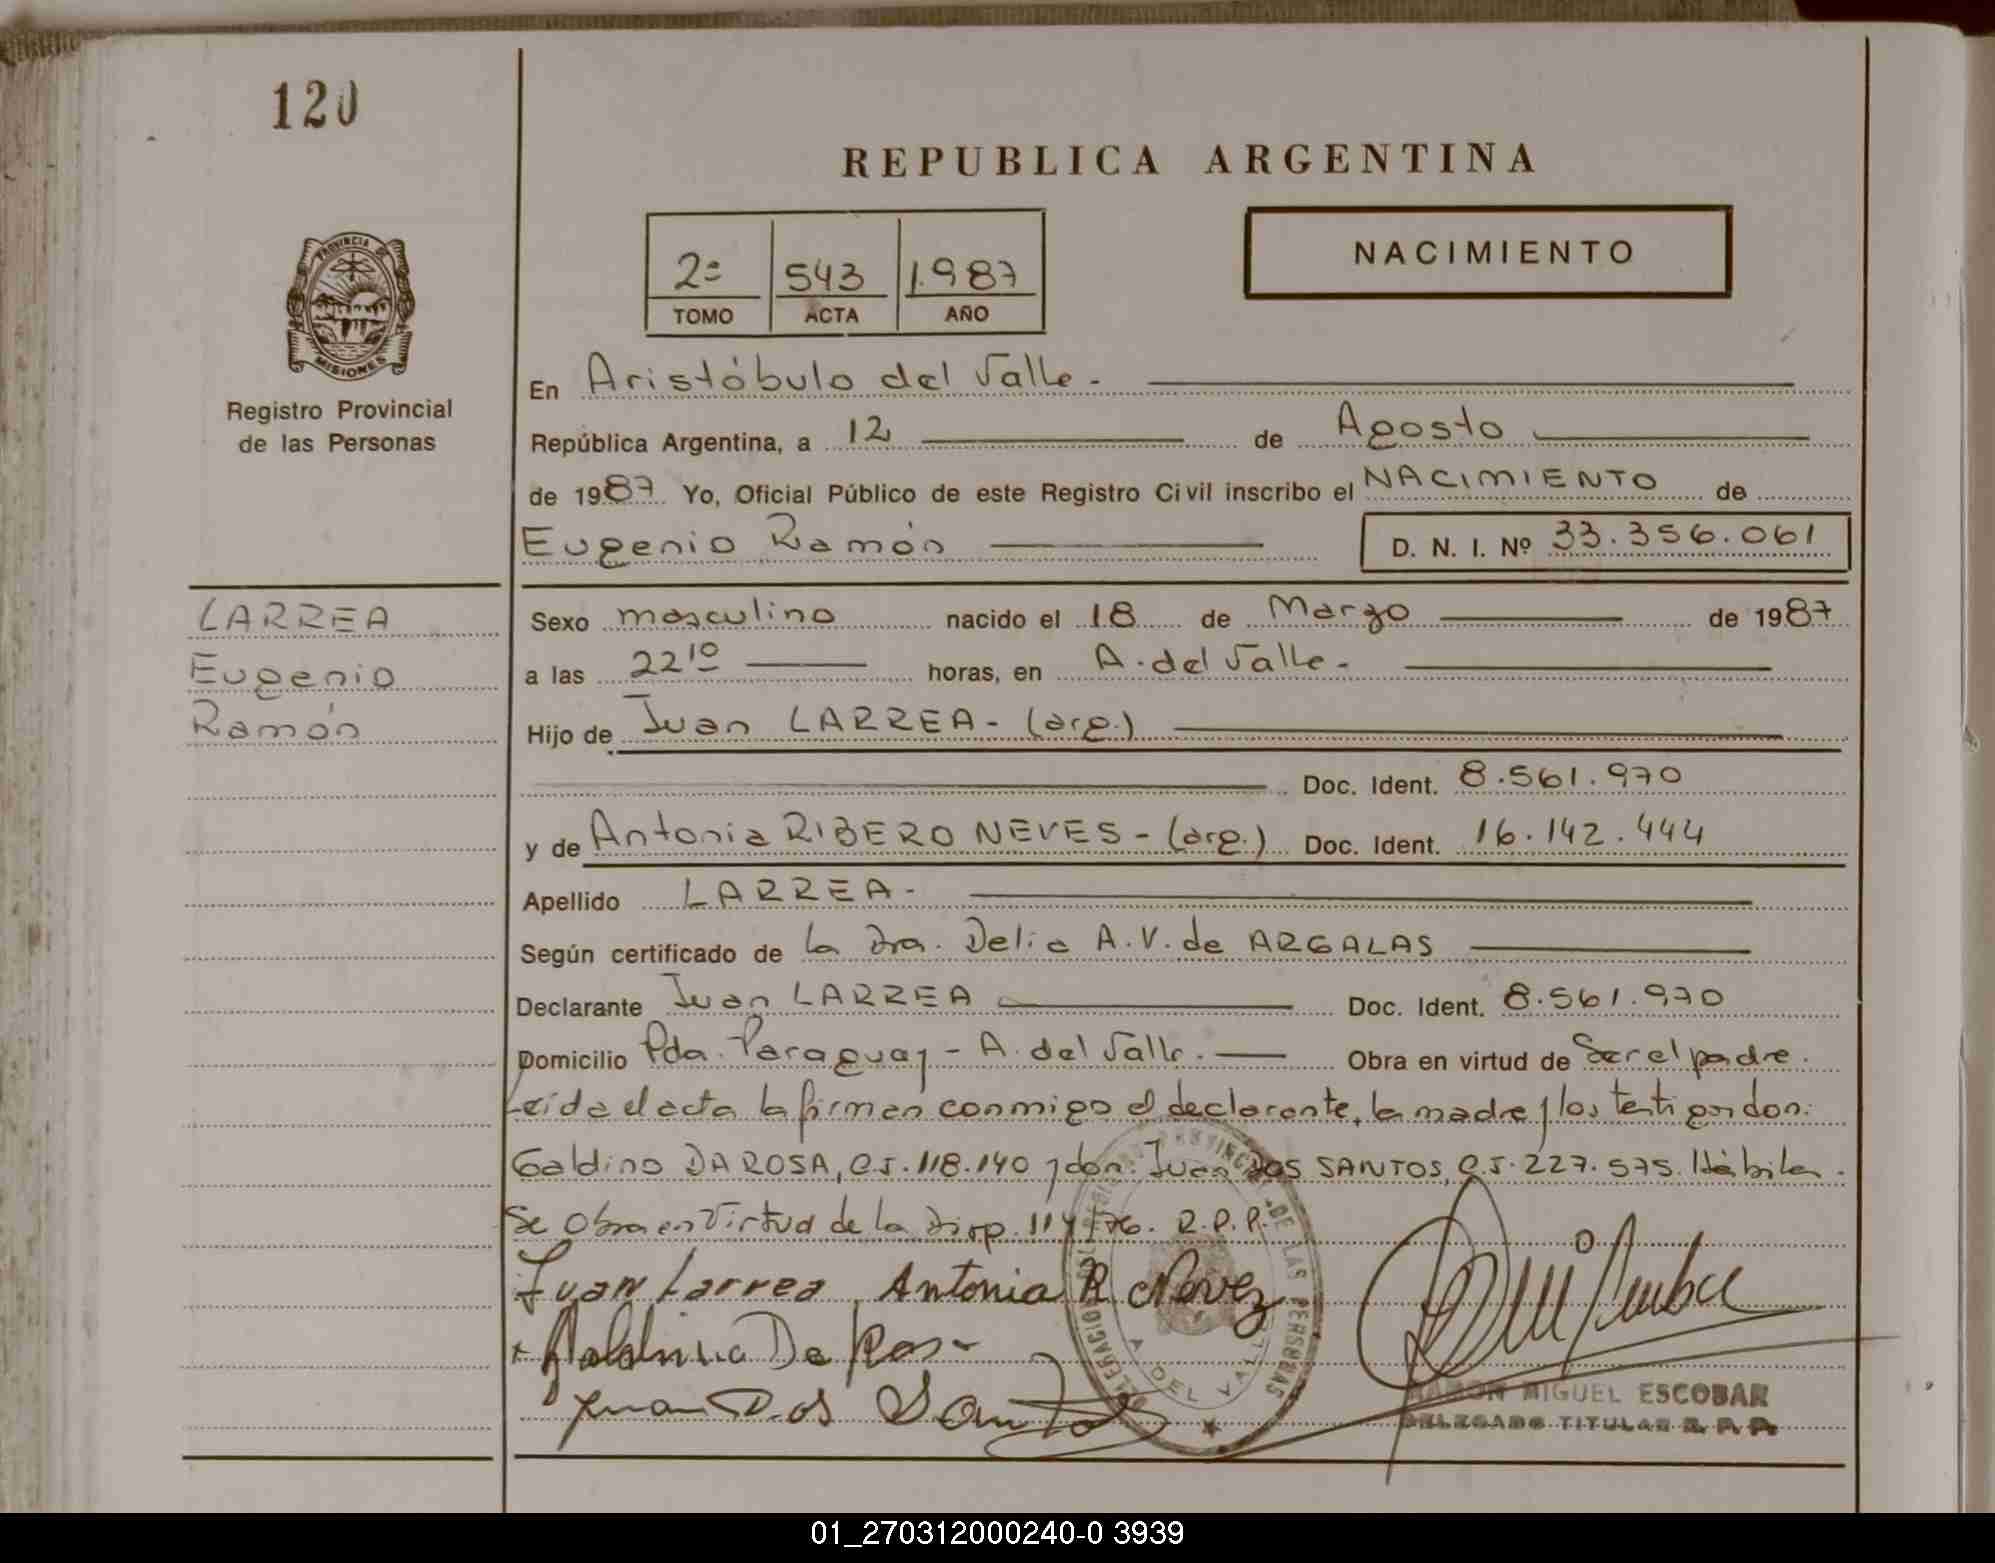 120
REPUBLICA ARGENTINA
2ª 543 1.987
TOMO ACTA AÑO
NACIMIENTO
PROVINCIA DE
MISIONES
Registro Provincial
de las Personas
En Aristóbulo del Valle.-
República Argentina, a 12 de Agosto
de 1987 Yo, Oficial Público de este Registro Civil inscribo el NACIMIENTO de
Eugenio Ramón D. N. I. Nº 33.356.061
LARREA
Eugenio
Ramón
Sexo masculino nacido el 18 de Marzo de 1987
a las 22¹⁰ horas, en A. del Valle.-
Hijo de Juan LARREA - (arg.)
Doc. Ident. 8.561.970
y de Antonia RIBERO NEVES - (arg.) Doc. Ident. 16.142.444
Apellido LARREA.-
Según certificado de la Dra. Delia A. V. de ARGALAS
Declarante Juan LARREA Doc. Ident. 8.561.970
Domicilio Pda. Paraguay - A. del Valle. Obra en virtud de Ser el padre.
Leida el acta la firman conmigo el declarante, la madre y los testigos don:
Galdino DA ROSA, C.I. 118.140 y don: Juan DOS SANTOS, C.I. 227.575. Hábiles.
Se Obra en Virtud de la Disp. 114/76. R.P.P.
Juan Larrea Antonia R. Nevez
Juan Dos Santos
DE LAS PERSONAS
A DEL VALLE
RAMON MIGUEL ESCOBAR
DELEGADO TITULAR R. P. P.
01_270312000240-0 3939